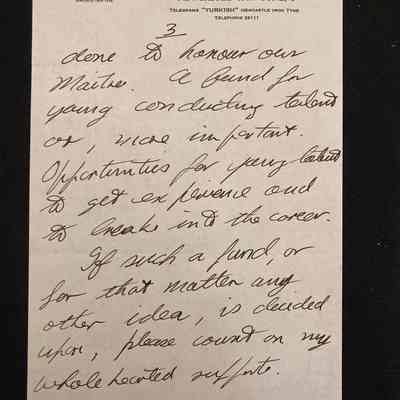 Telegrams "TURKISH" NEWCASTLE UPON TYNE
TELEPHONE 26111
3
done to honour our
Maitre. A fund for
young conducting talent
or, more important.
Opportunities for young talent
to get experience and
to break into the career.
If such a fund, or
for that matter any
other idea, is decided
upon, please count on my
whole hearted support.